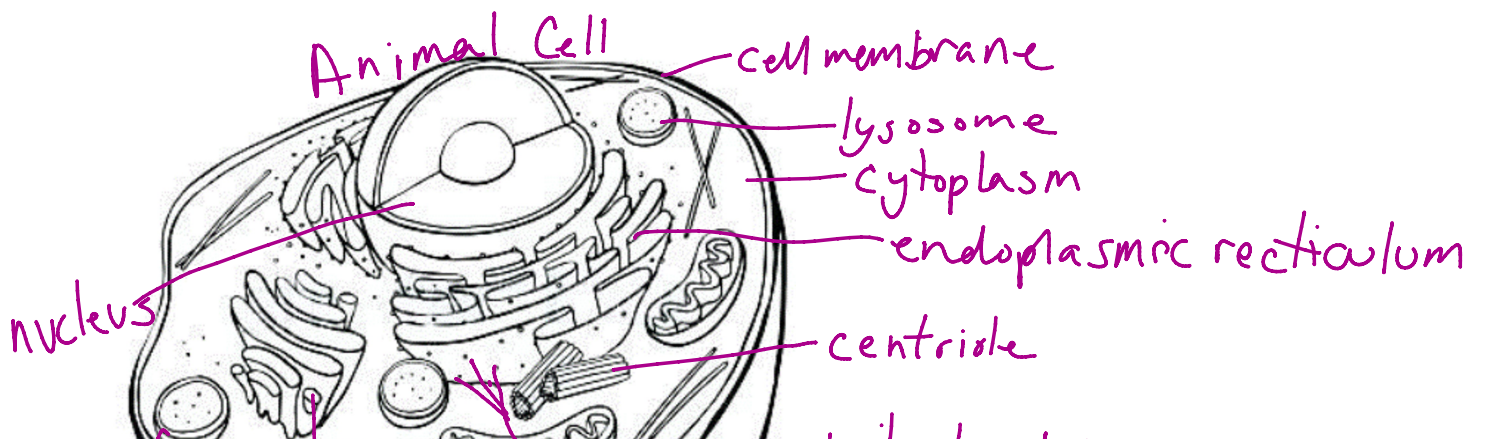 Animal Cell
cell membrane
lysosome
cytoplasm
endoplasmic recticulum
nucleus
centriole